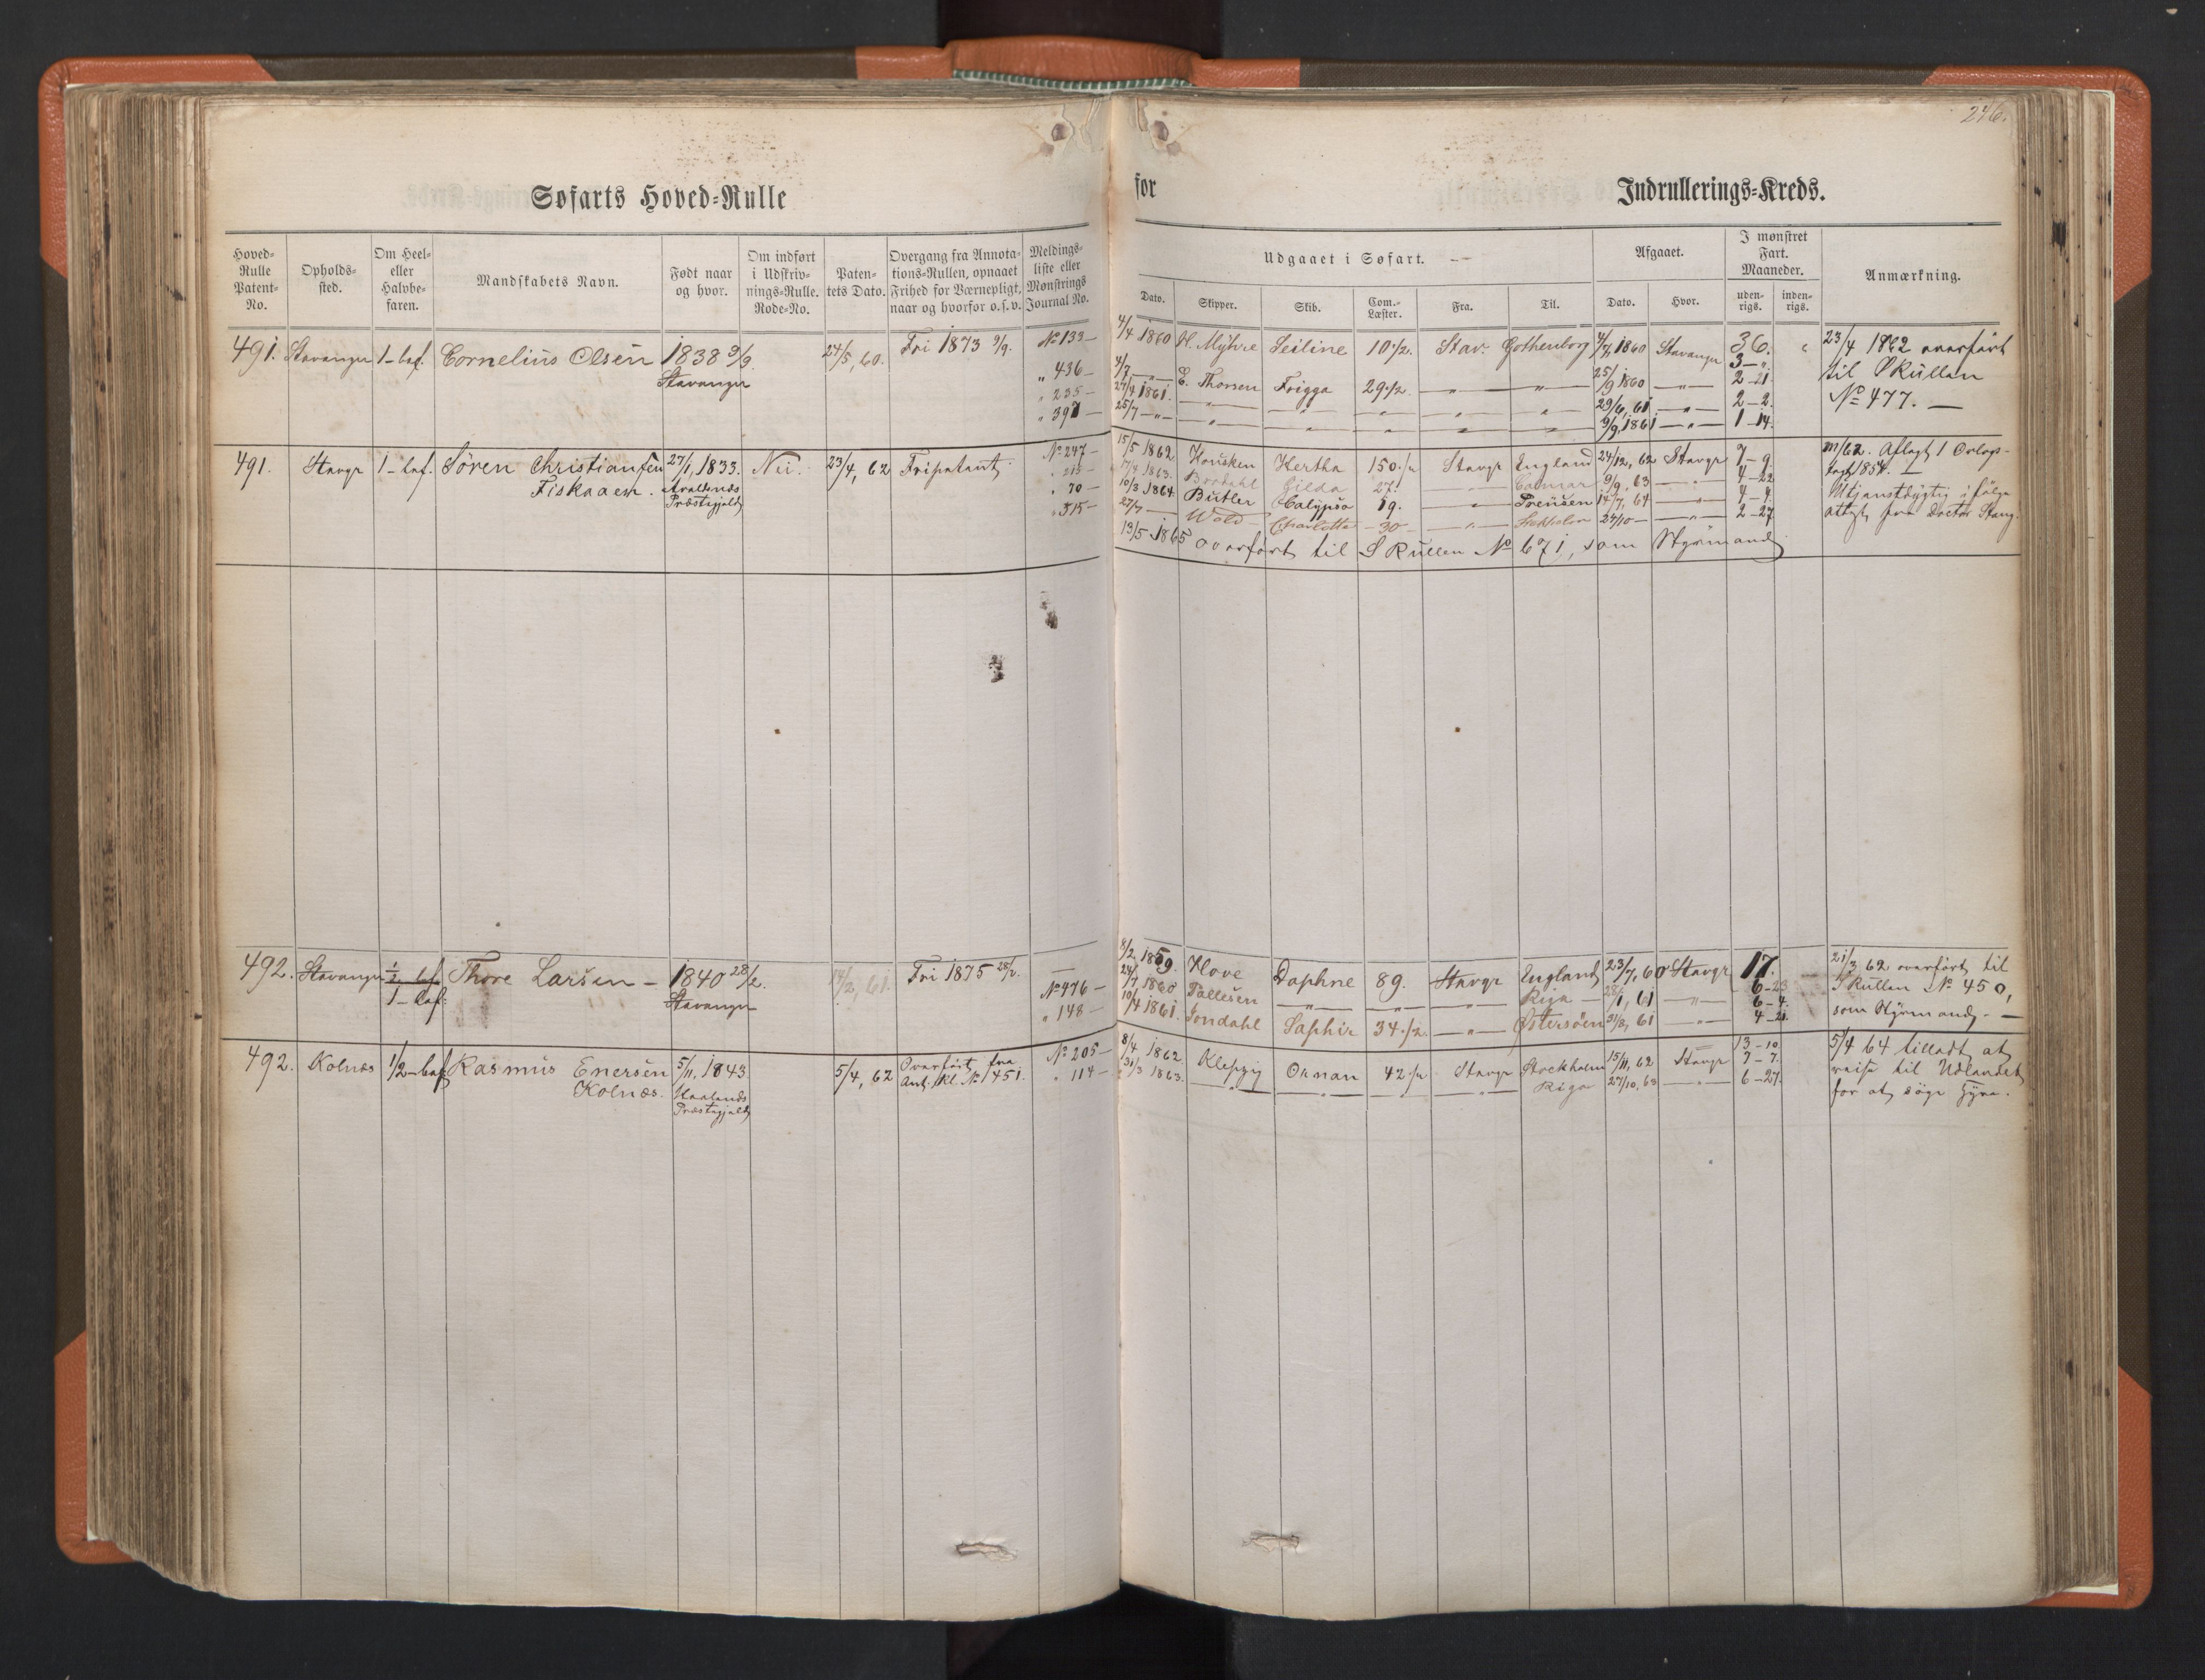 246.
Søfarts Hoved-Rulle
for
Indrullerings-Kreds.
Hoved-Rulle Patent-No.
Opholds-sted.
Om Heel- eller Halvbe-faren.
Mandskabets Navn.
Født naar og hvor.
Om indført i Udskriv-nings-Rulle. Rode-No.
Paten-tets Dato.
Overgang fra Annota-tions-Rullen, opnaaet Frihed for Værnepligt, naar og hvorfor o. s. v.
Meldings-liste eller Mønstrings Journal No.
Udgaaet i Søfart.
Dato.
Skipper.
Skib.
Com.-Læster.
Fra.
Til.
Afgaaet.
Dato.
Hvor.
I mønstret Fart. Maaneder.
uden-rigs.
inden-rigs.
Anmærkning.
491. Stavanger 1-bef. Cornelius Olsen 1838 3/9. 24/5, 60. Fri 1873 3/9. No 133 –
Stavanger
" 436 –
" 235 –
" 397 –
4/4 1860 H. Myhre Seiline 10 1/2. Stav. Gothenborg 4/7, 1860 Stavanger 36.
3 – ".
4/7 – " – E. Thorsen Frigga 29 1/2. – " – " 25/9 1860 – " – 2 – 21
27/4 1861. – " – – " – " – " – " 29/6, 61 – " – 2 – 2.
25/7 – " – – " – – " – " – " – " 9/9, 1861 – " – 1 – 14.
23/4 1862 overført
til S Rullen
No 477. –
491. Stavgr 1 – bef. Søren Christiansen 27/1, 1833. Nei. 23/4, 62 Fripatent. No 247 –
Fiskaaen. Præstegjeld
" 70 –
" 515 –
15/5 1862. Housken Hertha 150 Stavgr England 24/12, 62 Stavgr 7 – 9.
17/4 1863. Gilda 27. – " – 9/9, 63 – " – 4 – 22
10/3 1864. Butler Calypso 19. – " – Preusen 14/7, 64 – " – 4 – 4.
27/7 – Wold Charlotte – 30 – – " – 24/10 – – " – 2 – 27
13/5 1865 overført til S Rullen No 671, som Styrmand
m/62. Aflagt 1 Orlogs-
togt 1854. –
Utjenstdygtig ifølge
attest fra Doctor Stang.
492. Stavanger 1/2 bef. Thore Larsen – 1840 28/2. 14/2, 61. Fri 1875 28/2. –
1 – bef. Stavanger No 476 –
" 148 –
8/2 1859. Hove Daphne 89. Stavgr England 23/7, 60 Stavgr 17.
24/7 1860 Tallesen – " – – " – – " – Riga – 28/1, 61 – " – 6 – 23
6 – 4.
10/4 1861. Jondahl Saphir 34 1/2. – " – Østersøen 31/8, 61 – " – 4 – 21.
21/3 62 overført til
S Rullen No 450,
som Styrmand. –
492. Kolnæs 1/2 – bef Rasmus Enersen 5/11, 1843 5/4, 62 Overført fra No 205 –
Kolnæs. Haalands Ant. Rl. No 1451. " 114 –
Præstegjeld
8/4 1862 Kleppig Ornan 42 Stavgr Stockholm 15/11, 62 Stavgr 13 – 10
7 – 7.
31/3 1863. – " – – " – – " – – " – Riga 27/10, 63 – " – 6 – 27.
5/4 64 tilladt at
reise til Udlandet
for at søge Hyre.